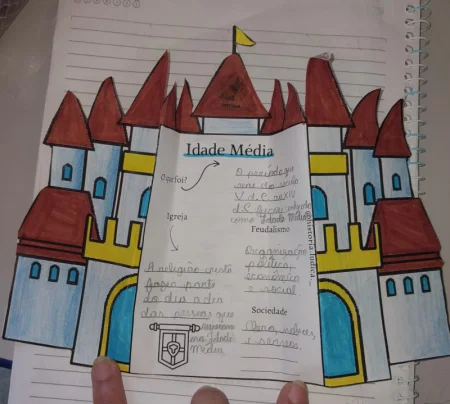 Idade Média
O que foi?
O período que
vai do século
V d.C. ao XIV
d.C. ficou conhecido
como Idade Média
Igreja
A religião cristã
fazia parte
do dia a dia
das pessoas que
na Idade
Média
Feudalismo
Organização
política,
econômica
e social
Sociedade
Clero, nobres,
e servos.
@historia.ludica